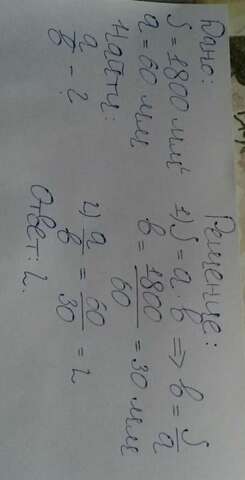 Дано:
S = 1800 мм²
a = 60 мм
Найти:
a/b - ?
Решение:
1) S = a · b ⇒ b = S/a
b = 1800/60 = 30 мм
2) a/b = 60/30 = 2
Ответ: 2.